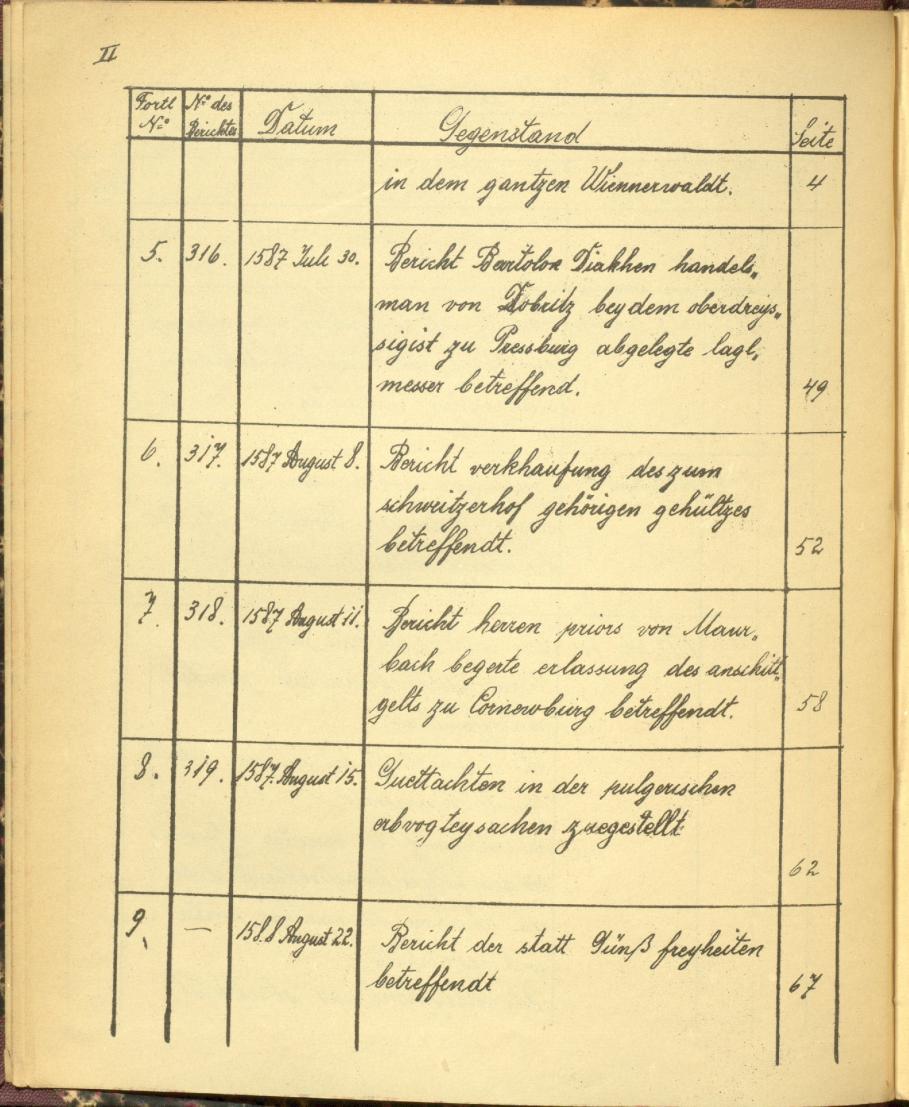 II
Fortl N:o | No des Berichtes | Datum | Gegenstand | Seite
in dem gantzen Wiennerwaldt. | 4
5. | 316. | 1587 Juli 30. | Bericht Bartolox Diakhen handels„
man von Dobritz bey dem oberdreys„
sigist zu Pressburg abgelegte lagl„
messer betreffend. | 49
6. | 317. | 1587 August 8. | Bericht verkhaufung des zum
schweitzerhof gehörigen gehültzes
betreffendt. | 52
7. | 318. | 1587 August 11. | Bericht herren priors von Maur„
bach begerte erlassung des anschütt„
gelts zu Cornewburg betreffendt. | 58
8. | 319. | 1587. August 15. | Guettachten in der pulgerischen
erbvogteysachen zuegestellt
62
9. | — | 1588 August 22. | Bericht der statt Günß freyheiten
betreffendt | 67